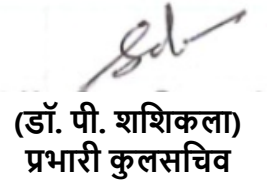 (डॉ. पी. शशिकला)
प्रभारी कुलसचिव